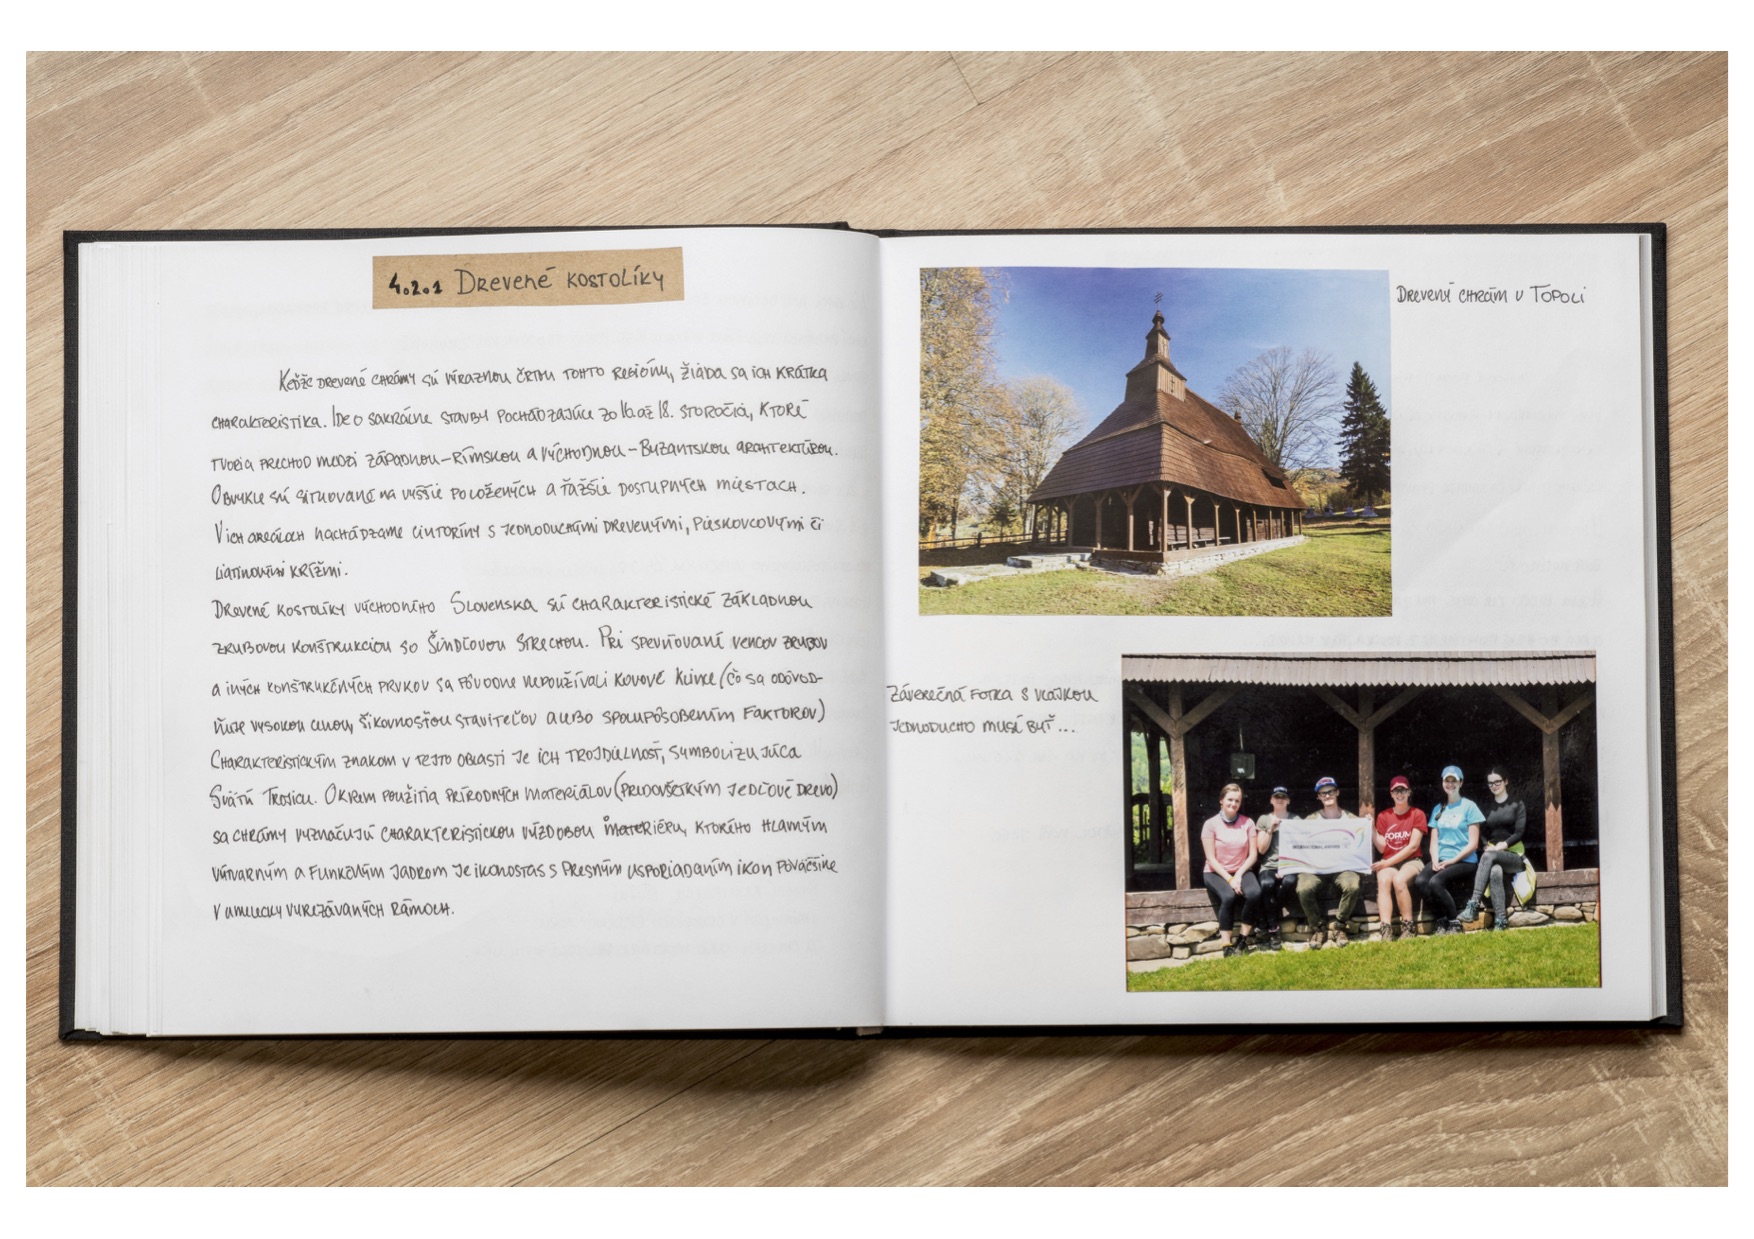 4.2.1 Drevené kostolíky
Keďže drevené chrámy sú výraznou črtou tohto regiónu, žiada sa ich krátka
charakteristika. Ide o sakrálne stavby pochádzajúce zo 16. až 18. storočia, ktoré
tvoria prechod medzi západnou-rímskou a východnou-byzantskou architektúrou.
Obvykle sú situované na vyššie položených a ťažšie dostupných miestach.
V ich areáloch nachádzame cintoríny s jednoduchými drevenými, pieskovcovými či
liatinovými krížmi.
Drevené kostolíky východného Slovenska sú charakteristické základnou
zrubovou konštrukciou so šindľovou strechou. Pri spevňovaní vencov zrubov
a iných konštrukčných prvkov sa pôvodne nepoužívali kovové klince (čo sa odôvod-
ňuje vysokou cenou, šikovnosťou staviteľov alebo spolupôsobením faktorov)
Charakteristickým znakom v tejto oblasti je ich trojdielnosť, symbolizujúca
Svätú Trojicu. Okrem použitia prírodných materiálov (predovšetkým jedľové drevo)
sa chrámy vyznačujú charakteristickou výzdobou interiéru, ktorého hlavným
výtvarným a funkčným jadrom je ikonostas s presným usporiadaním ikon poväčšine
v umelecky vyrezávaných rámoch.
Drevený chrám v Topoli
Záverečná fotka s vlajkou
jednoducho musí byť...
FORUM